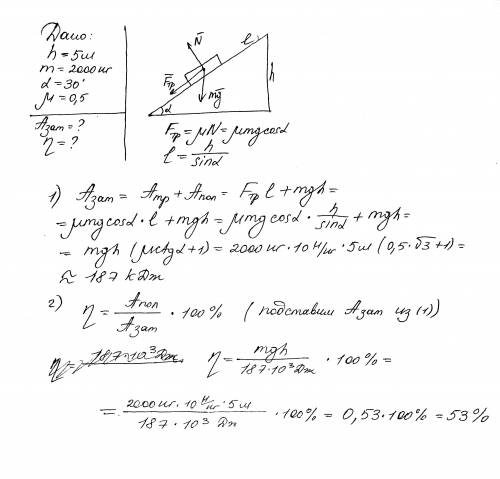 Дано:
h = 5м
m = 2000 кг
α = 30°
μ = 0,5
Aзат = ?
η = ?
N̄
l
F̄тр
h
mḡ
α
Fтр = μN = μmgcosα
l = h/sinα
1) Aзат = Aтр + Aпол = Fтр l + mgh =
= μmgcosα · l + mgh = μmgcosα · h/sinα + mgh =
= mgh (μctgα + 1) = 2000 кг · 10 н/кг · 5м (0,5 · √3 + 1) =
≈ 187 кДж
2) η = Aпол/Aзат · 100% (подставим Aзат из (1))
η = mgh/187·10³Дж · 100% =
= 2000 кг · 10 н/кг · 5м/187 · 10³ Дж · 100% = 0,53 · 100% = 53%